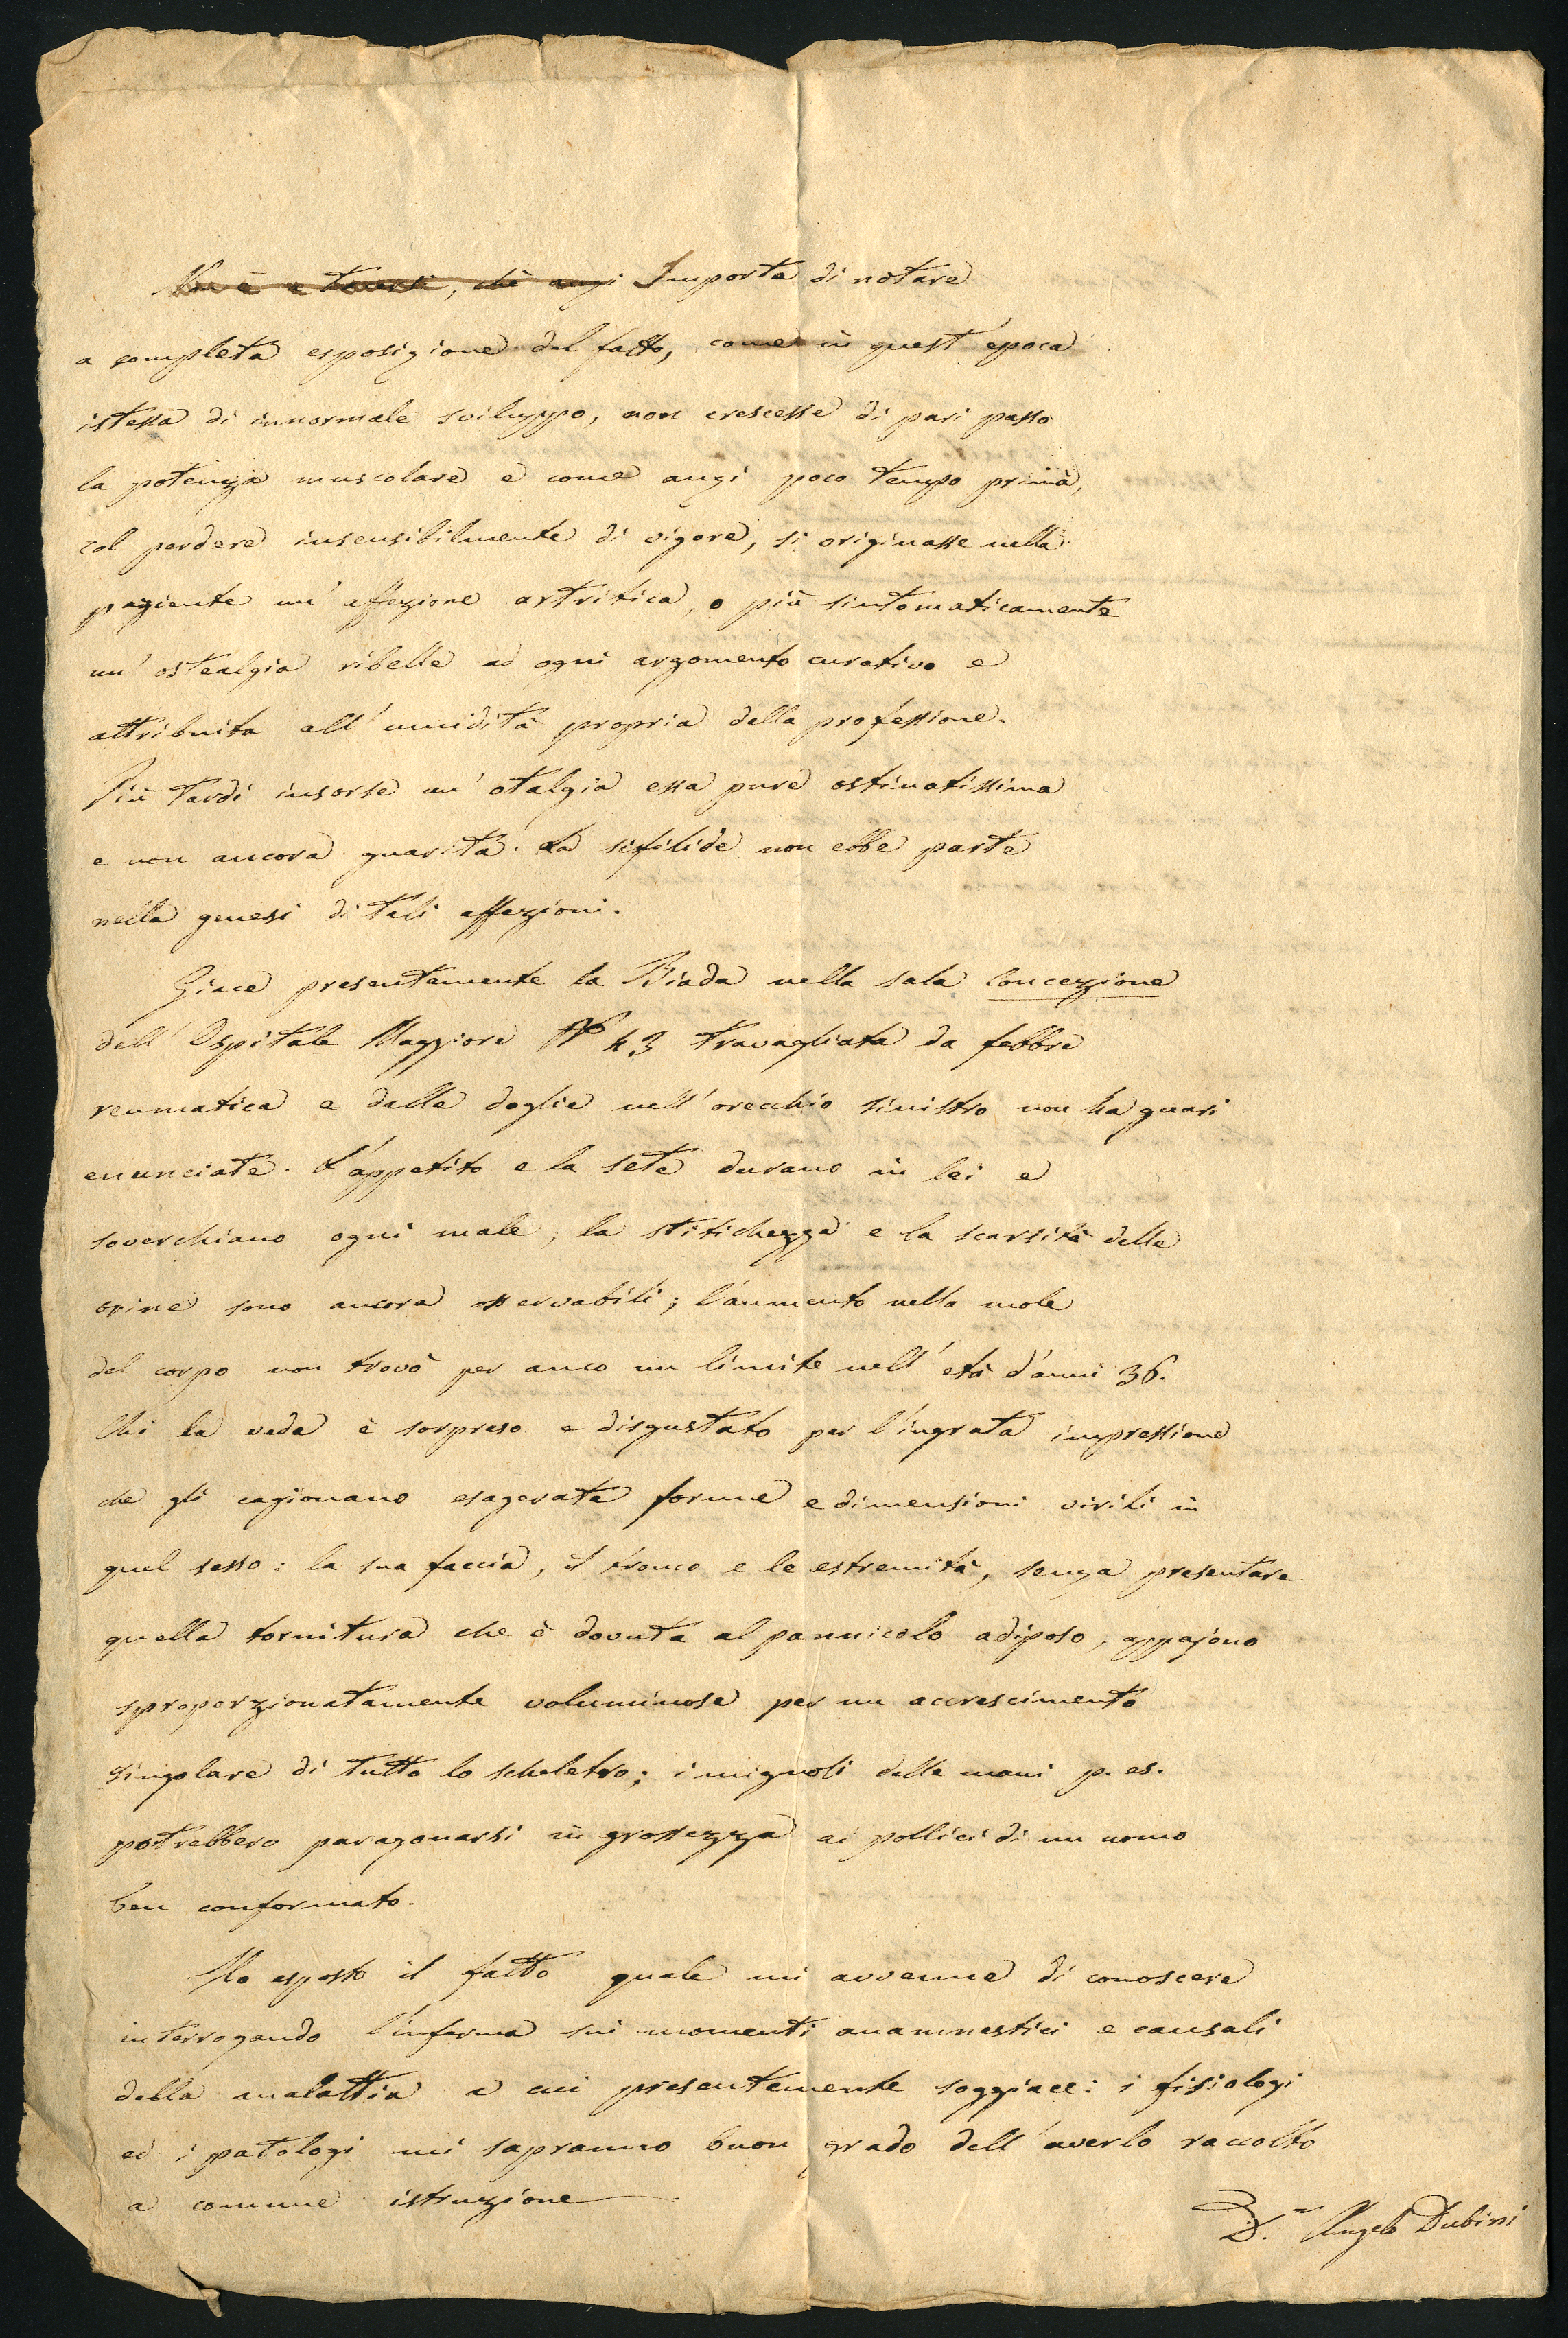 Non è a tacersi, chè anzi Importa di notare
a completa esposizione del fatto, come in quest'epoca
istessa di innormale sviluppo, non crescesse di pari passo
la potenza muscolare e come anzi poco tempo prima,
col perdere insensibilmente di vigore, si originasse nella
paziente un'affezione artritica, o più sintomaticamente
un'ostealgia ribelle ad ogni argomento curativo e
attribuita all'umidità propria della professione.
Più tardi insorse un'otalgia essa pure ostinatissima
e non ancora guarita. La sifilide non ebbe parte
nella genesi di tali affezioni.
Giace presentemente la Biada nella sala Concezione
dell'Ospitale Maggiore N° 43 travagliata da febbre
reumatica e dalle doglie nell'orecchio sinistro non ha guari
enunciate. L'appetito e la sete durano in lei e
soverchiano ogni male; la stitichezza e la scarsità delle
orine sono ancora osservabili; l'aumento nella mole
del corpo non trovò per anco un limite nell'età d'anni 36.
Chi la vede è sorpreso e disgustato per l'ingrata impressione
che gli cagionano esagerate forme e dimensioni virili in
quel sesso: la sua faccia, il tronco e le estremità, senza presentare
quella tornitura che è dovuta al pannicolo adiposo, appajono
sproporzionatamente voluminose per un accrescimento
singolare di tutto lo scheletro; i mignoli delle mani p. es.
potrebbero paragonarsi in grossezza ai pollici di un uomo
ben conformato.
Ho esposto il fatto quale mi avvenne di conoscere
interrogando l'inferma sui momenti anamnestici e causali
della malattia a cui presentemente soggiace: i fisiologi
ed i patologi mi sapranno buon grado dell'averlo raccolto
a comune istruzione
D.r Angelo Dubini